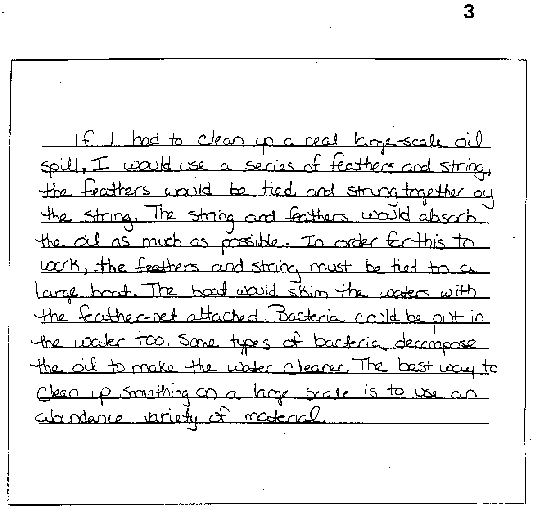 3
If I had to clean up a real large-scale oil
spill, I would use a series of feathers and string,
the feathers would be tied and strung together by
the string. The string and feathers would absorb
the oil as much as possible. In order for this to
work, the feathers and string must be tied to a
large boat. The boat would skim the waters with
the feather-net attached. Bacteria could be put in
the water too. Some types of bacteria decompose
the oil to make the water cleaner. The best way to
clean up smothing on a large scale is to use an
abundance variety of material.